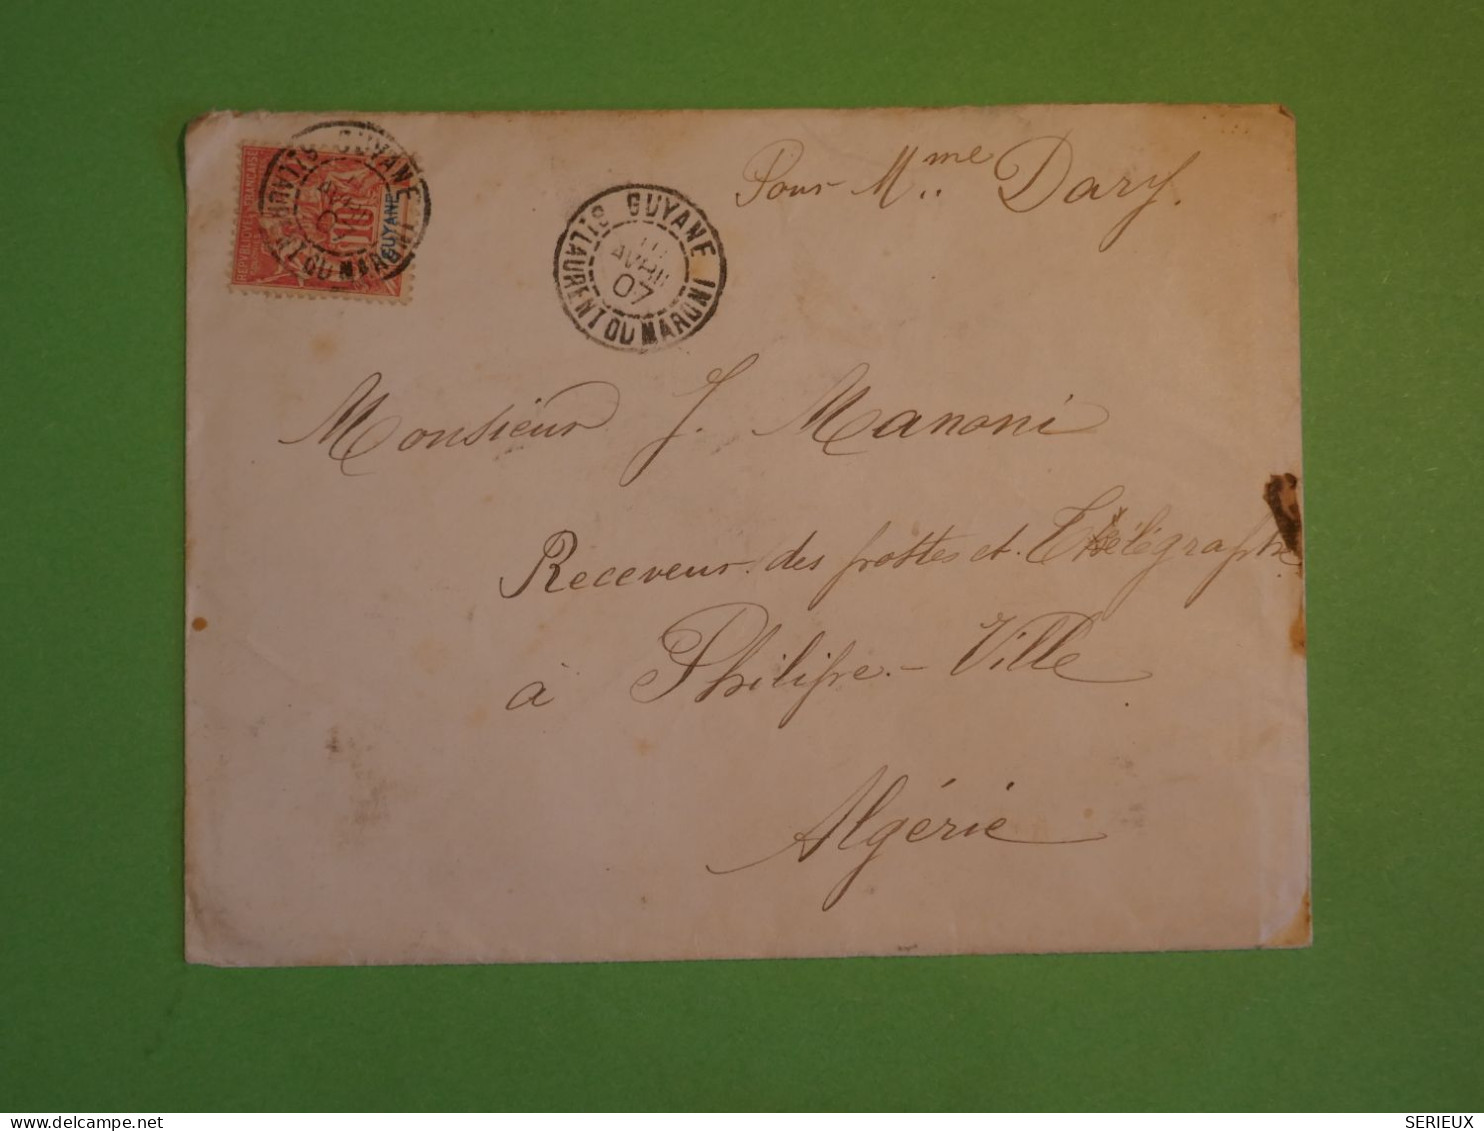 Pour Mme Dary.
REPVBLIQVE FRANÇAISE
10
GUYANE
GUYANE
ST LAURENT DU MARONI
GUYANE
AVRIL
07
ST LAURENT DU MARONI
Monsieur J. Manoni
Receveur des postes et Télégraphe
à Philippe-Ville
Algérie
www.delcampe.net
SERIEUX